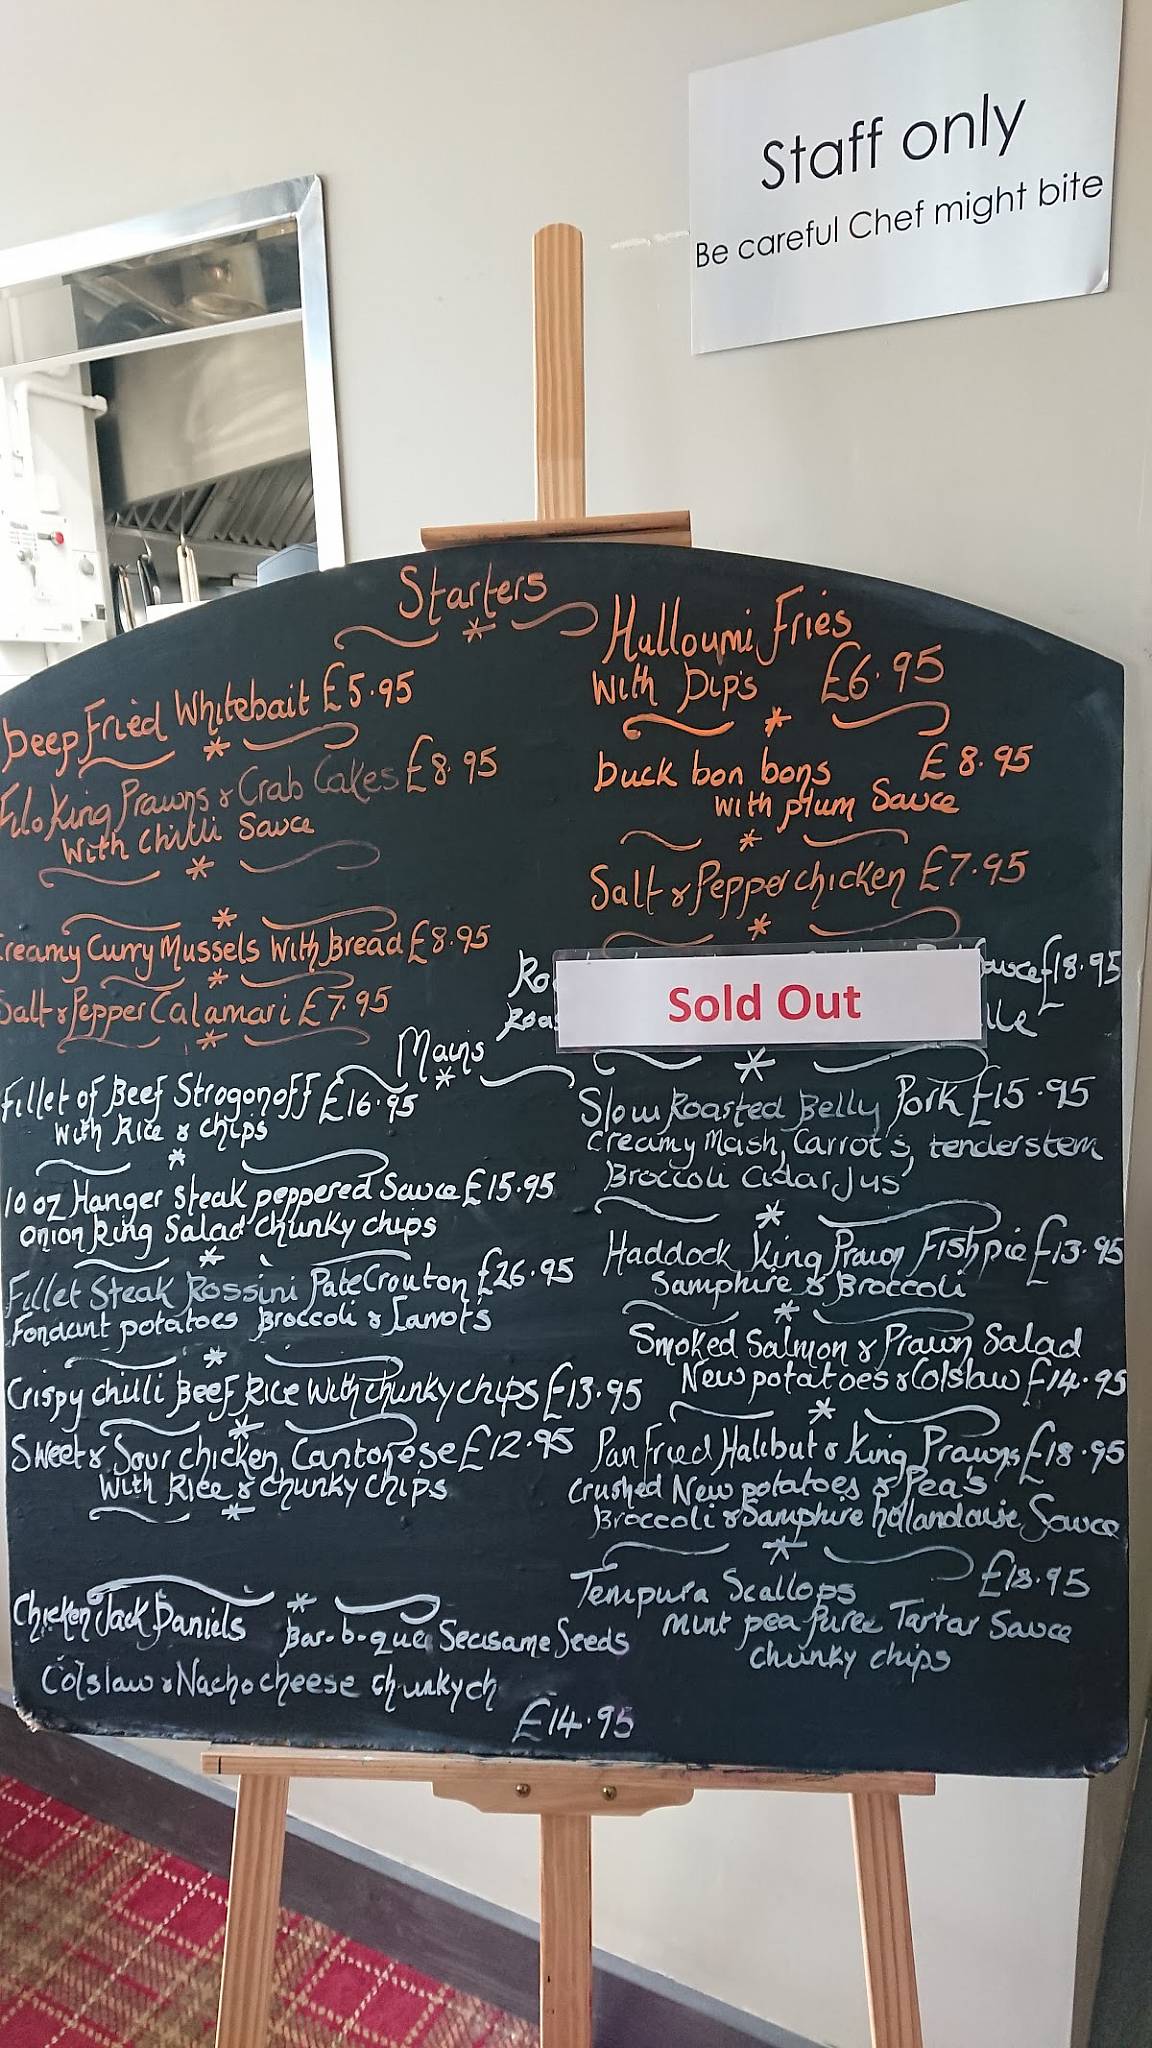 Staff only
Be careful Chef might bite
Starters
Deep Fried Whitebait £5.95
Filo King Prawns & Crab Cakes £8.95
With Chilli Sauce
Creamy Curry Mussels With Bread £8.95
Salt & Pepper Calamari £7.95
Halloumi Fries
With Dip's £6.95
Duck bon bons £8.95
With plum Sauce
Salt & Pepper chicken £7.95
Sauce £18.95
Sold Out
Mains
Fillet of Beef Strogonoff £16.95
With Rice & chips
10 oz Hanger steak peppered Sauce £15.95
Onion Ring Salad chunky chips
Fillet Steak Rossini Pate Crouton £26.95
Fondant potatoes Broccoli & Carrots
Crispy chilli Beef Rice With chunky chips £13.95
Sweet & Sour chicken Cantonese £12.95
With Rice & chunky chips
Chicken Jack Daniels Bar-b-que Secisame Seeds
Colslaw & Nacho cheese chunky ch
£14.95
Slow Roasted Belly Pork £15.95
Creamy Mash, Carrot's, tenderstem
Broccoli Cidar Jus
Haddock King Prawn Fish pie £13.95
Samphire & Broccoli
Smoked Salmon & Prawn Salad
New potatoes & Colslaw £14.95
Pan Fried Halibut & King Prawns £18.95
Crushed New potatoes & Pea's
Broccoli & Samphire hollandaise Sauce
Tempura Scallops £18.95
Mint pea puree Tartar Sauce
chunky chips